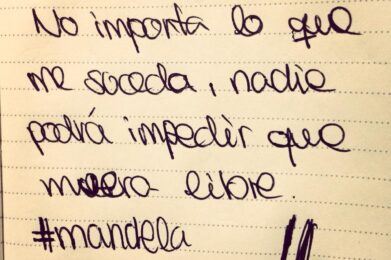 No importa lo que
me suceda, nadie
podrá impedir que
muera libre.
#mandela